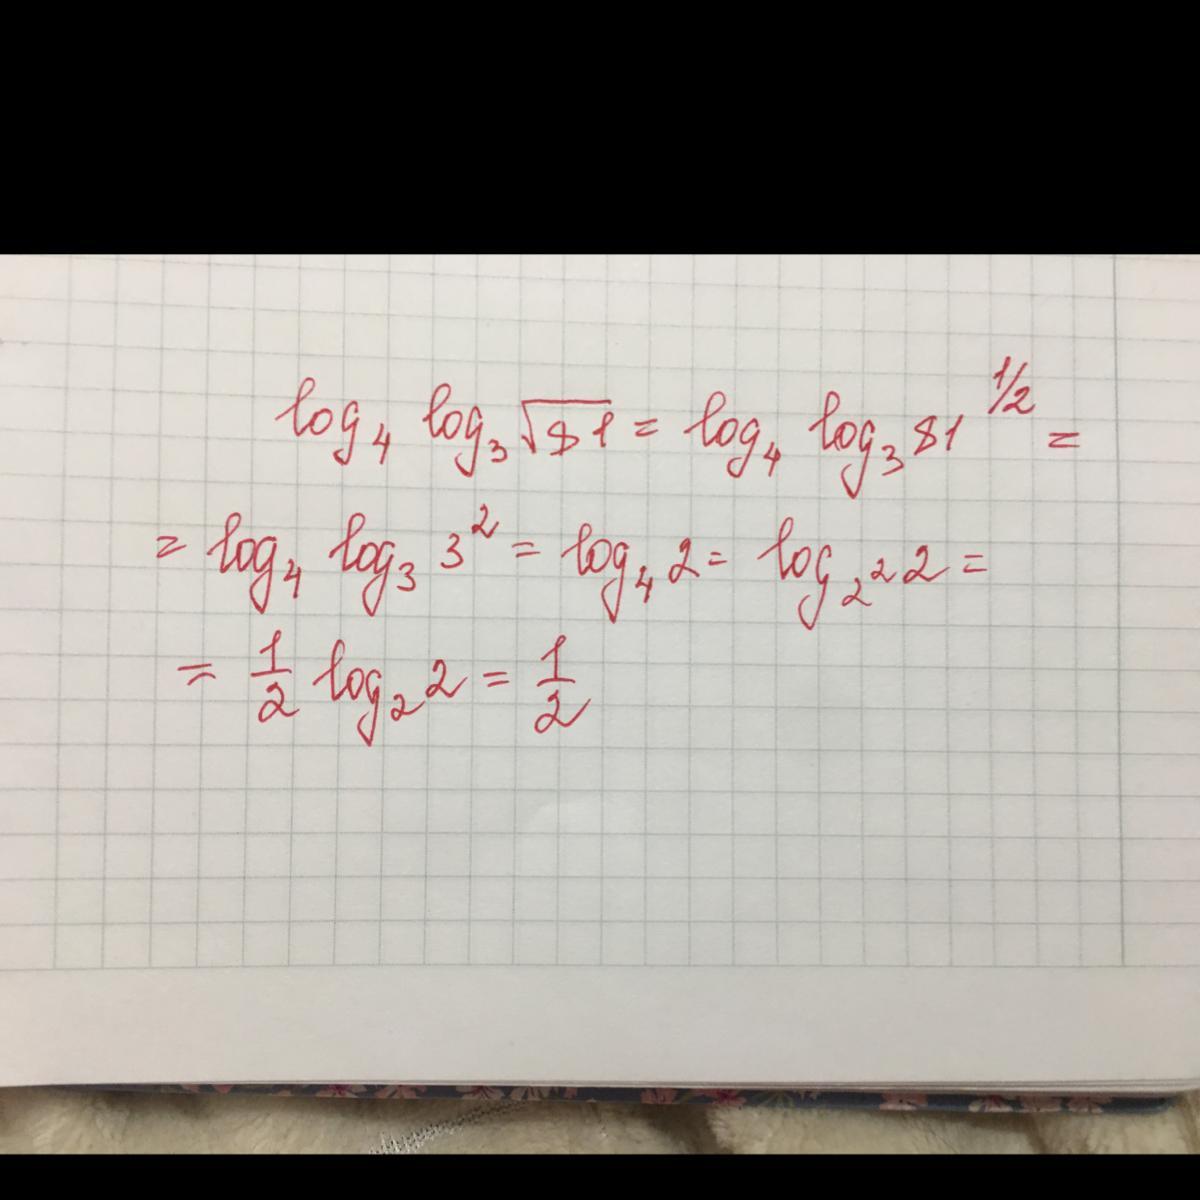 log₄ log₃ √81 = log₄ log₃ 81^1/2 =
= log₄ log₃ 3² = log₄ 2 = log₂² 2 =
= 1/2 log₂ 2 = 1/2